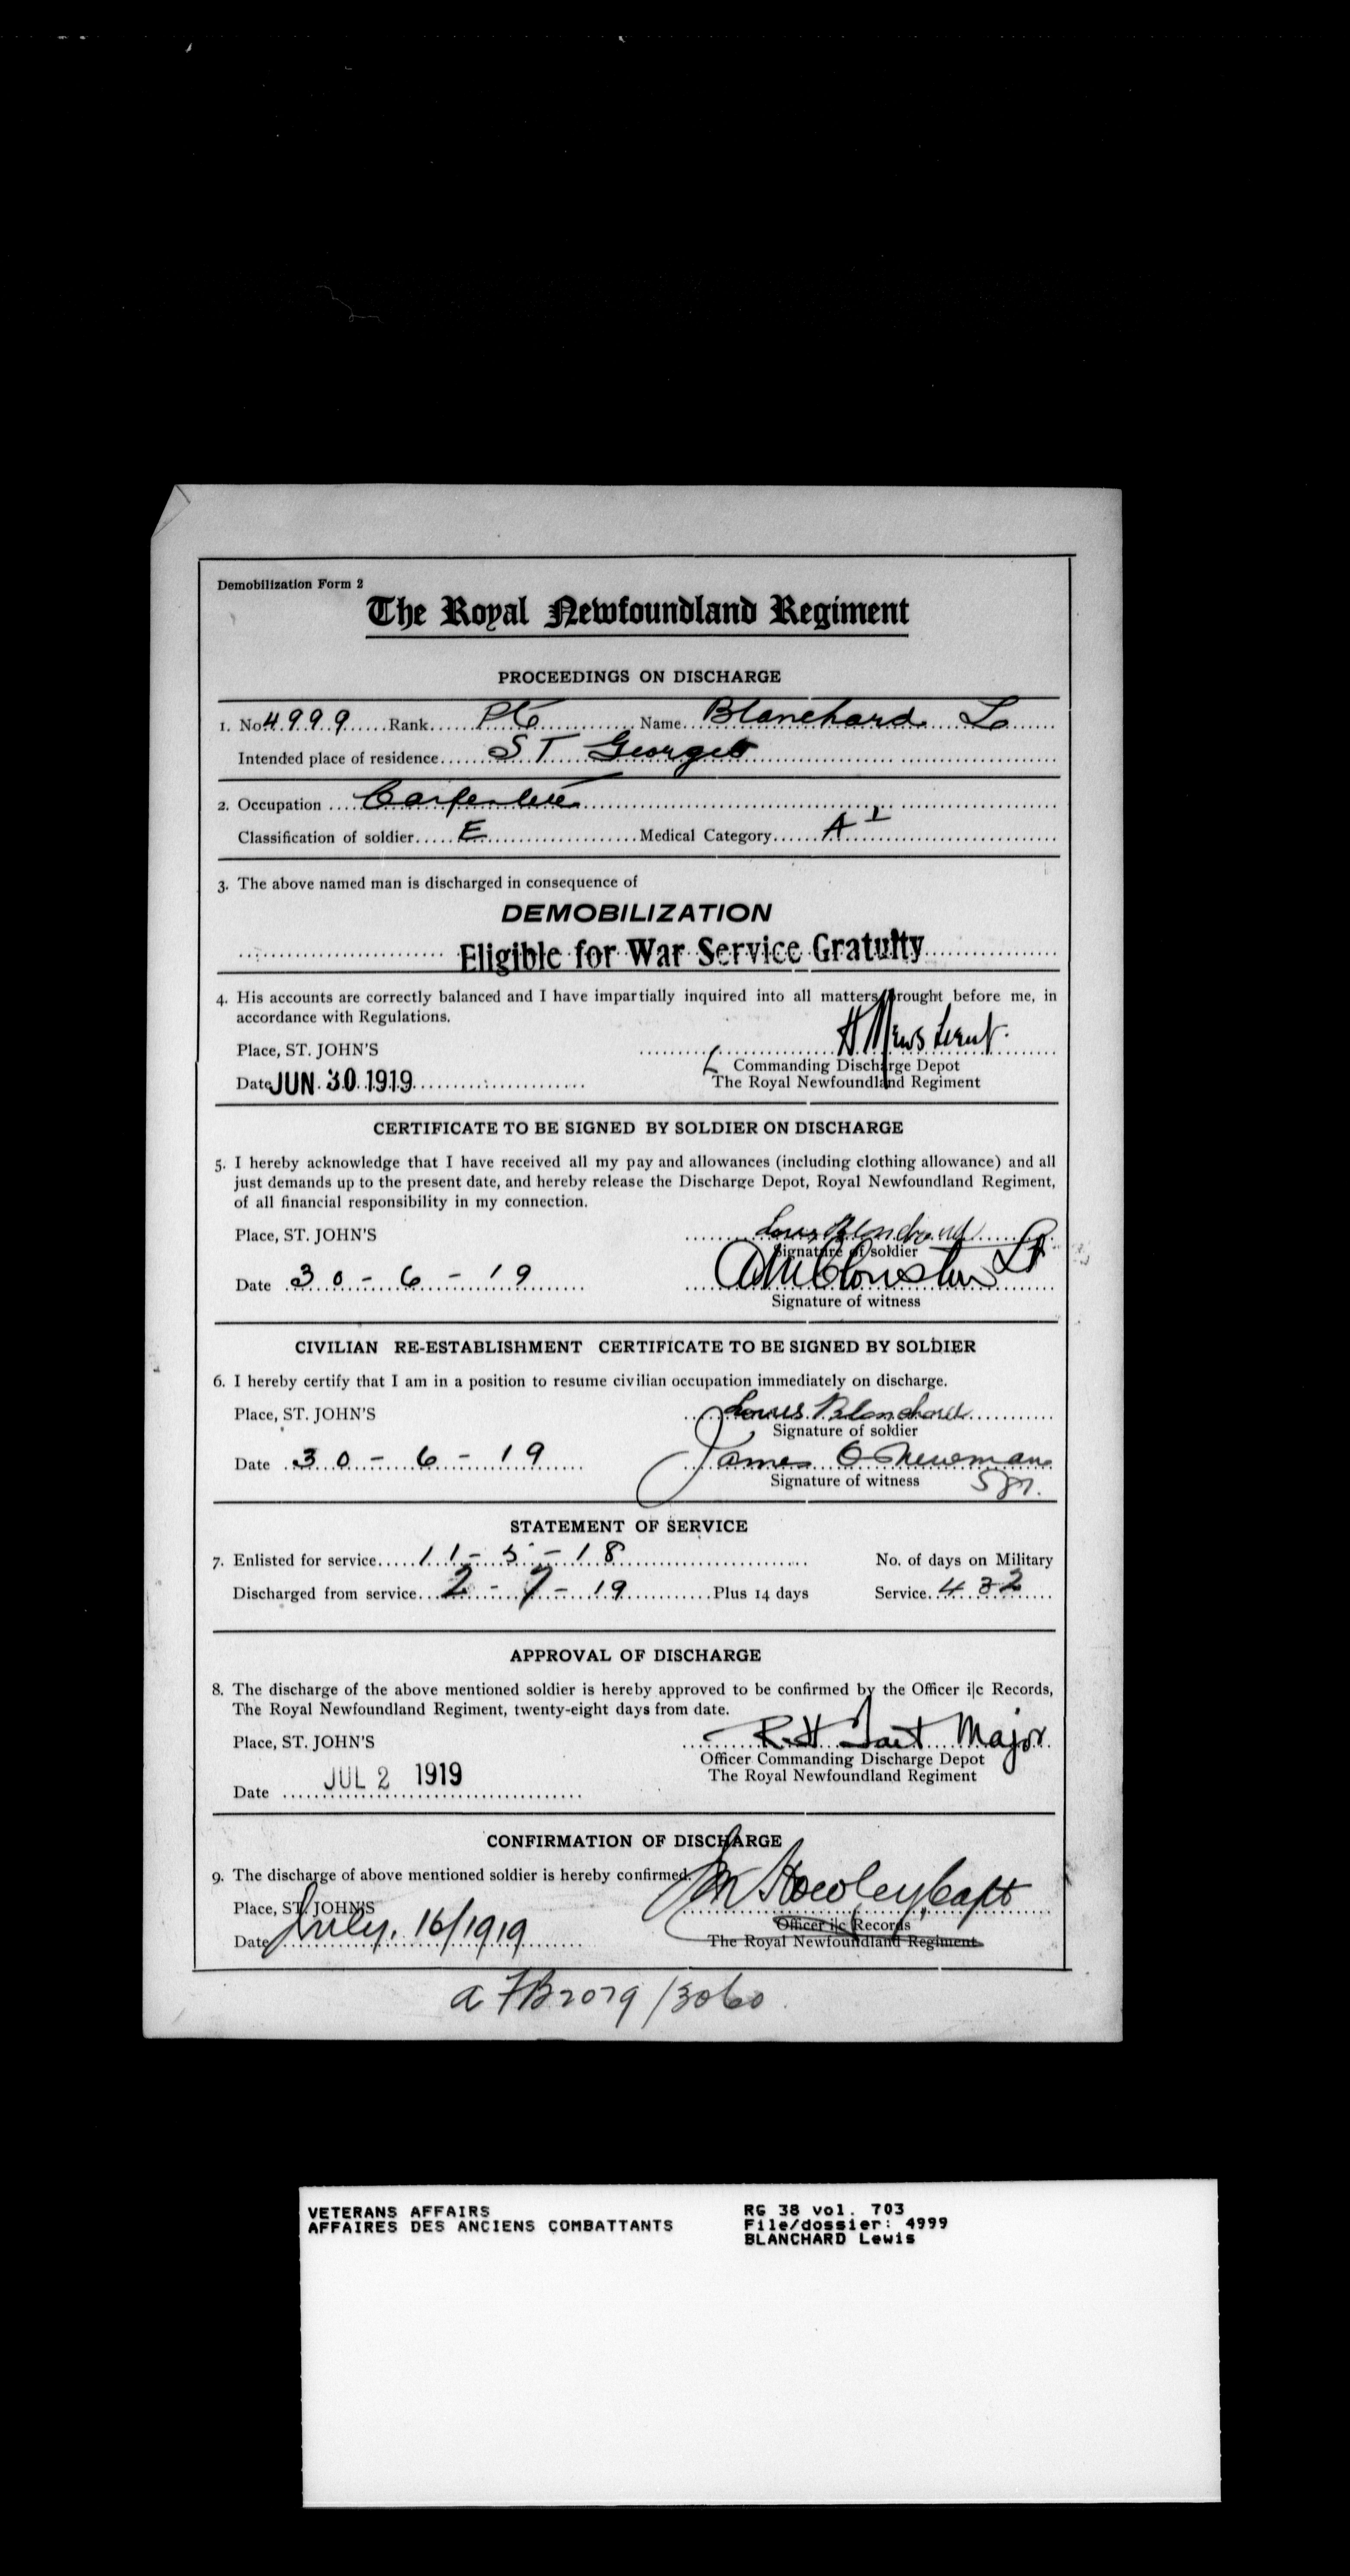 Demobilization Form 2
The Royal Newfoundland Regiment
PROCEEDINGS ON DISCHARGE
1. No 4999 Rank Pte Name Blanchard L
Intended place of residence ST Georges
2. Occupation Carpenter
Classification of soldier E Medical Category A I
3. The above named man is discharged in consequence of
DEMOBILIZATION
Eligible for War Service Gratuity
4. His accounts are correctly balanced and I have impartially inquired into all matters brought before me, in
accordance with Regulations.
H Mews Lieut.
Place, ST. JOHN'S
Commanding Discharge Depot
Date JUN 30 1919 The Royal Newfoundland Regiment
CERTIFICATE TO BE SIGNED BY SOLDIER ON DISCHARGE
5. I hereby acknowledge that I have received all my pay and allowances (including clothing allowance) and all
just demands up to the present date, and hereby release the Discharge Depot, Royal Newfoundland Regiment,
of all financial responsibility in my connection.
Place, ST. JOHN'S Louis Blanchard
Signature of soldier
Date 30-6-19 Lt
Signature of witness
CIVILIAN RE-ESTABLISHMENT CERTIFICATE TO BE SIGNED BY SOLDIER
6. I hereby certify that I am in a position to resume civilian occupation immediately on discharge.
Place, ST. JOHN'S Louis Blanchard
Signature of soldier
Date 30-6-19 James O Newman
Signature of witness
STATEMENT OF SERVICE
7. Enlisted for service 11-5-18 No. of days on Military
Discharged from service 2-7-19 Plus 14 days Service 432
APPROVAL OF DISCHARGE
8. The discharge of the above mentioned soldier is hereby approved to be confirmed by the Officer i|c Records,
The Royal Newfoundland Regiment, twenty-eight days from date.
Place, ST. JOHN'S R.H. Tait Major
Officer Commanding Discharge Depot
The Royal Newfoundland Regiment
Date JUL 2 1919
CONFIRMATION OF DISCHARGE
9. The discharge of above mentioned soldier is hereby confirmed.
Place, ST. JOHN'S Howley, Capt
Officer i|c Records
Date July, 16/1919 The Royal Newfoundland Regiment
a FB2079/3060
VETERANS AFFAIRS RG 38 vol. 703
AFFAIRES DES ANCIENS COMBATTANTS File/dossier: 4999
BLANCHARD Lewis